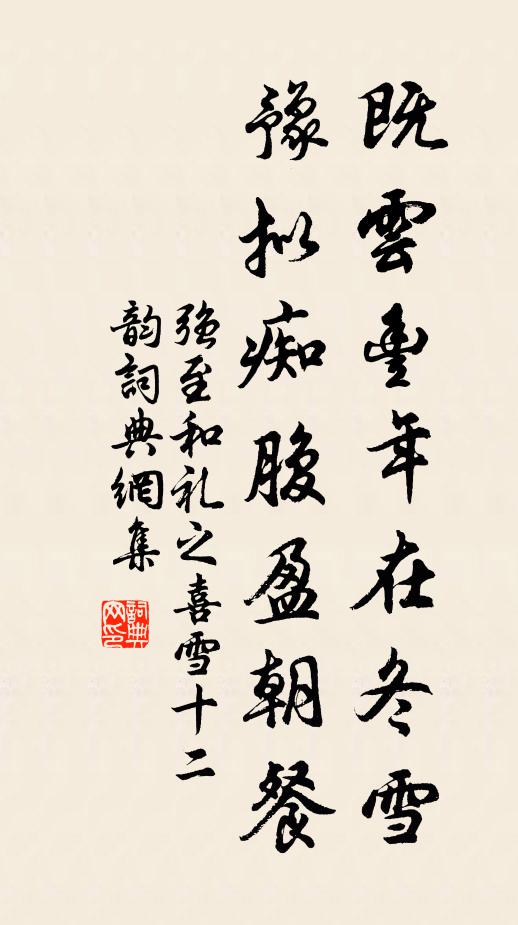 既雲豐年在冬雪
豫拟痴腹盈朝餐
强至和礼之喜雪十二
韵詞典網集
詞典網印